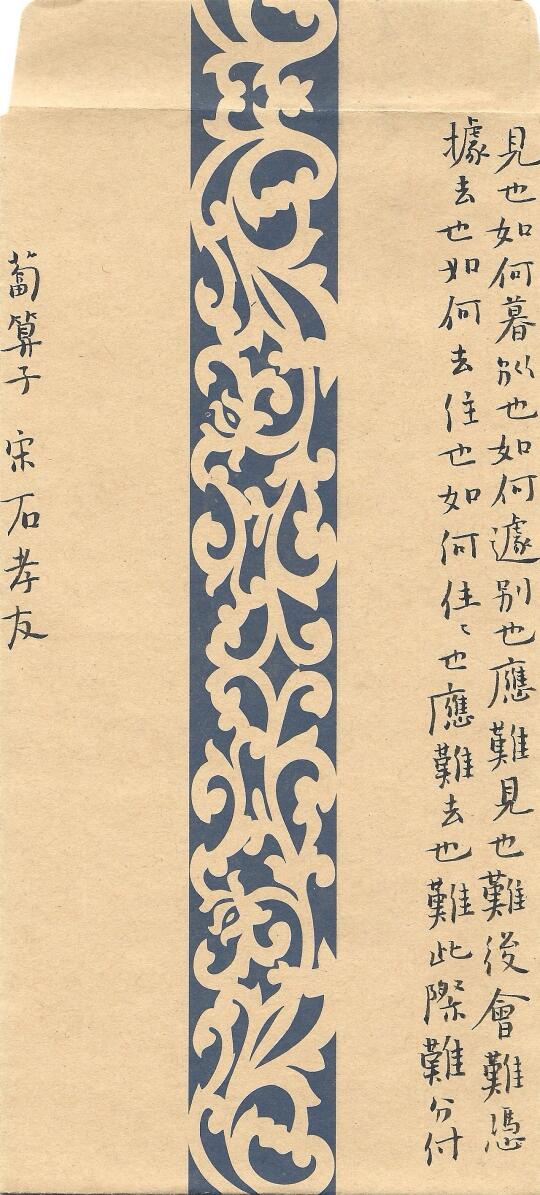 見也如何暮別也如何遽别也應難見也難後會難憑
據去也如何去住也如何住〻也應難去也難此際難分付
蔔算子 宋石孝友